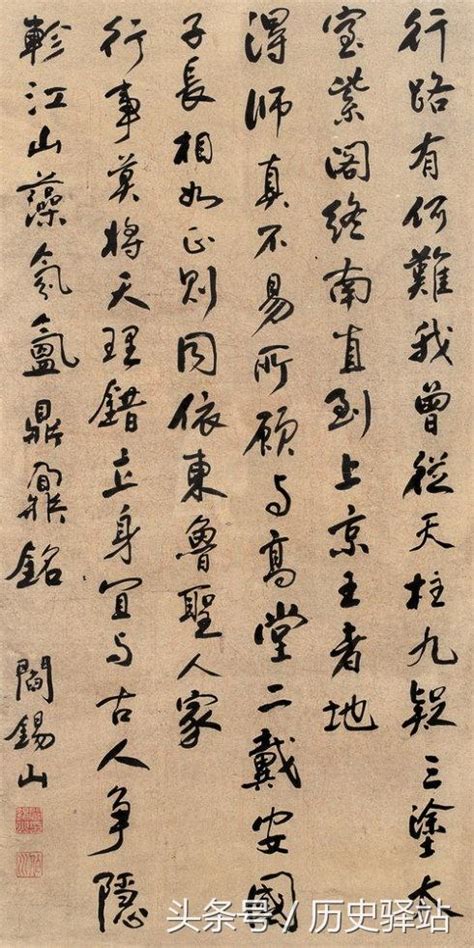 行路有何難我曾從天柱九疑三塗太
室紫閣終南直到上京王者地
得師真不易所願与高堂二戴安國
子長相如正則同依東魯聖人家
行事莫將天理錯立身宜与古人争隱
軫江山藻氛氳鼎鼐銘
閻錫山
头条号 / 历史驿站